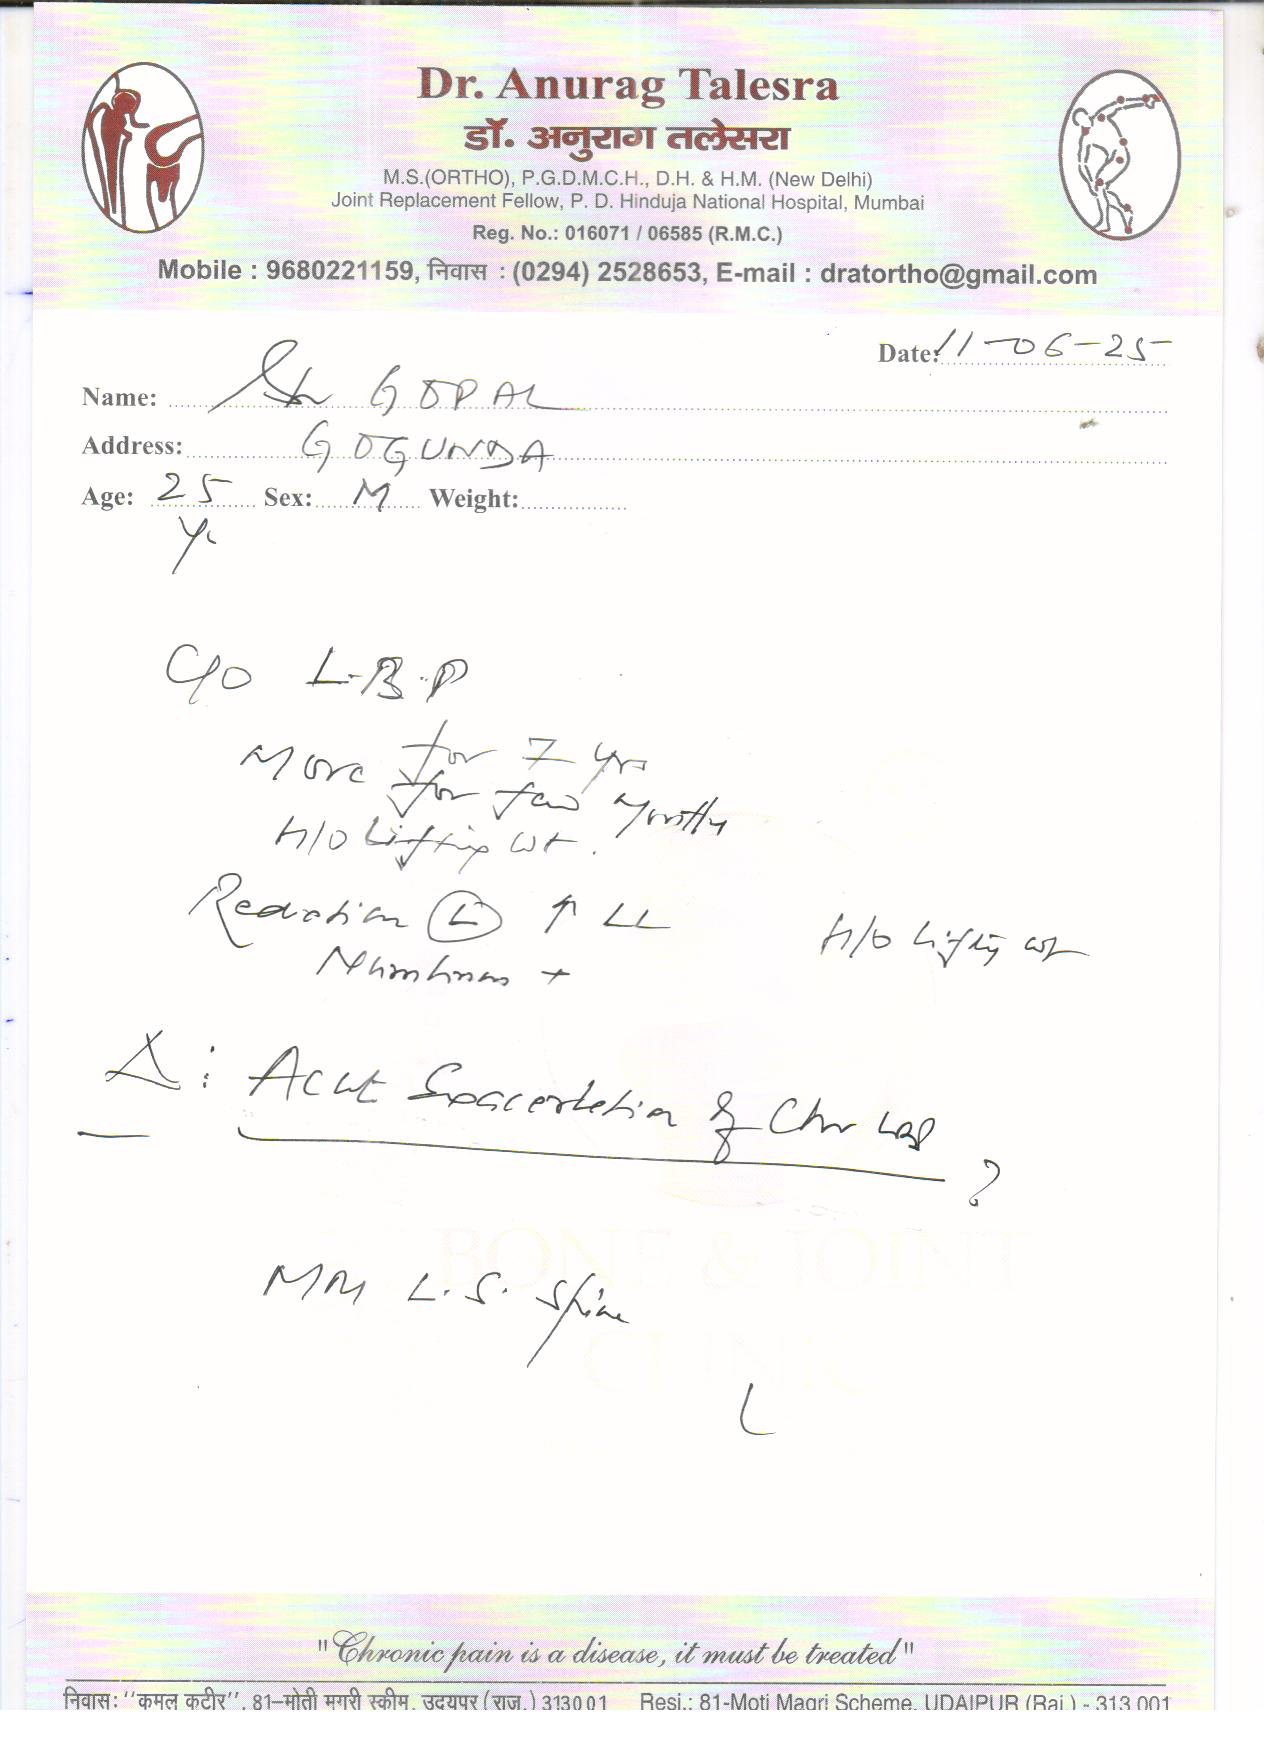 Dr. Anurag Talesra
डॉ. अनुराग तलेसरा
M.S.(ORTHO), P.G.D.M.C.H., D.H. & H.M. (New Delhi)
Joint Replacement Fellow, P. D. Hinduja National Hospital, Mumbai
Reg. No.: 016071 / 06585 (R.M.C.)
Mobile : 9680221159, निवास : (0294) 2528653, E-mail : dratortho@gmail.com
Date: 11-06-25
Name: GOPAL
Address: GOGUNDA
Age: 25 Sex: M Weight:
Yr
C/O L.B.P
for 7 yrs
More for few months
H/O Lifting wt.
L LL
H/O Lifting wt
Numbness +
Δ: Acute Exacerbation of Chr LBP
?
L.S. Spine
BONE & JOINT
CLINIC
"Chronic pain is a disease, it must be treated"
निवास: ''कमल कुटीर'', 81–मोती मगरी स्कीम, उदयपुर (राज.) 313001 Resi.: 81-Moti Magri Scheme, UDAIPUR (Raj.) - 313 001